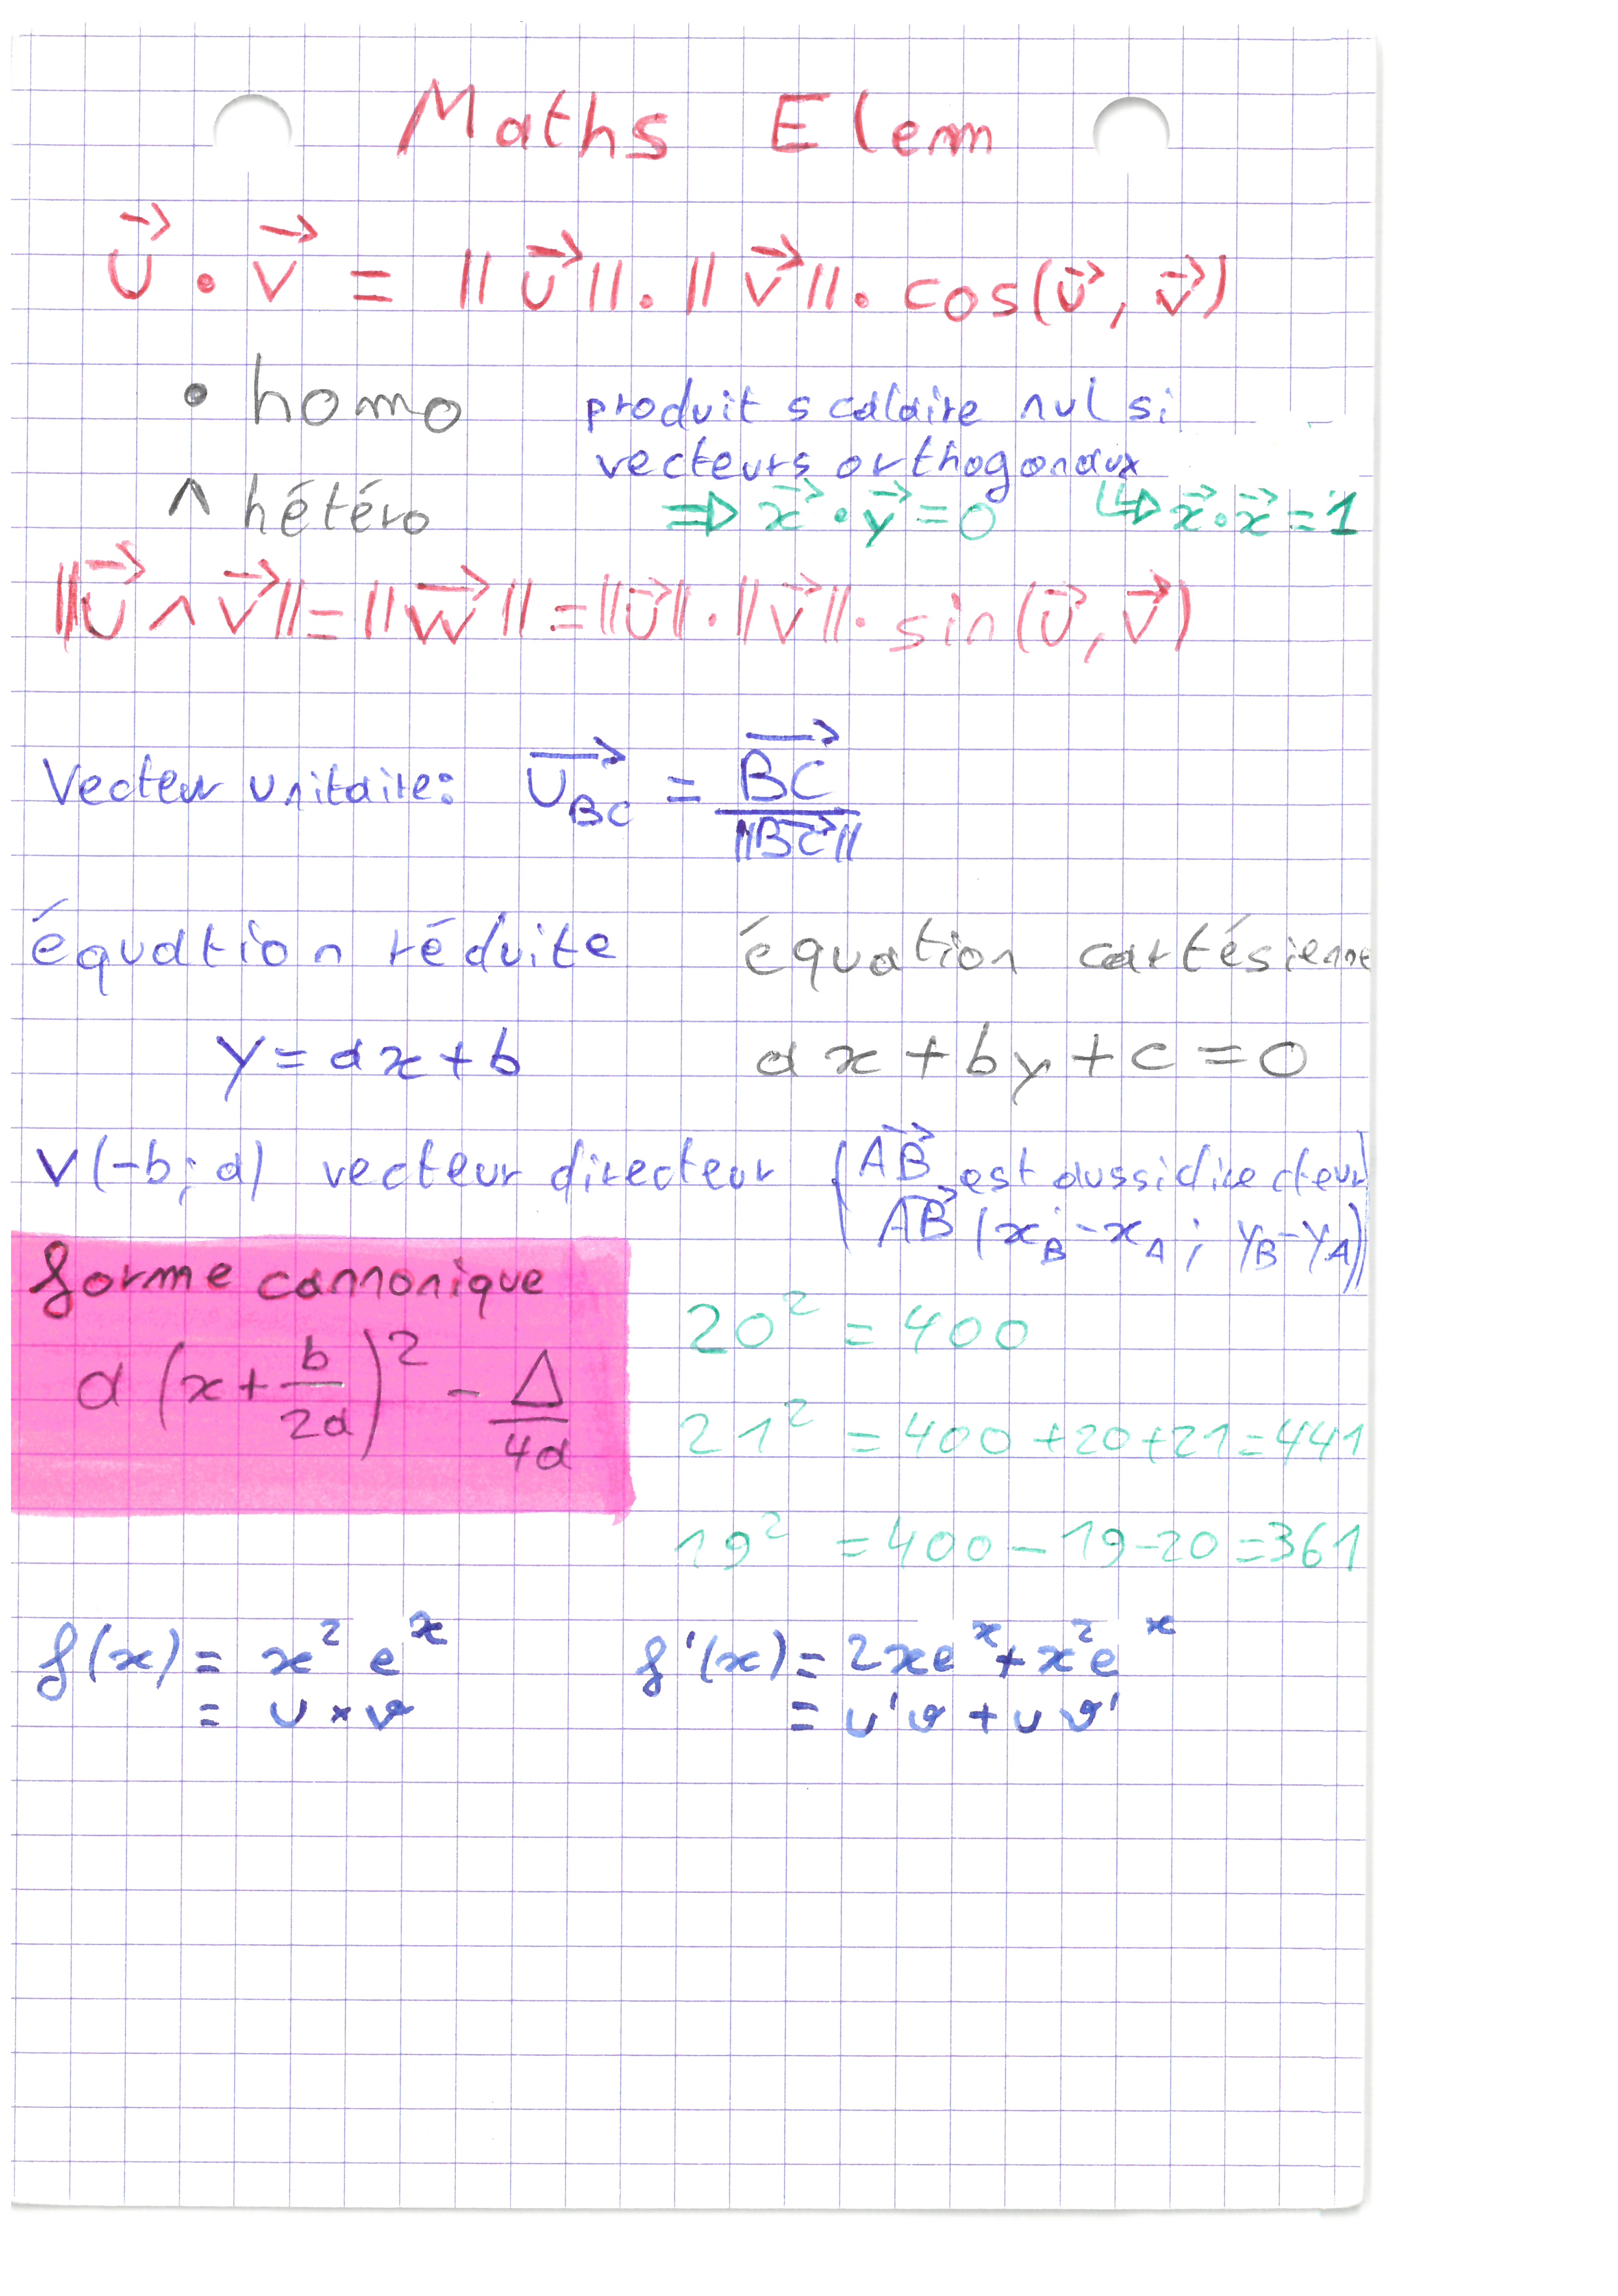 Maths Elem
u⃗ • v⃗ = ||u⃗||.||v⃗||. cos(u⃗, v⃗)
• homo produit scalaire nul si
vecteurs orthogonaux
∧ hétéro ⇒ x⃗ • y⃗ = 0 ↳ x⃗ • x⃗ = 1
||u⃗ ∧ v⃗|| = ||w⃗|| = ||u⃗||.||v⃗||. sin(u⃗, v⃗)
Vecteur unitaire: u⃗_BC = BC⃗ / ||BC⃗||
équation réduite équation cartésienne
y = ax + b ax + by + c = 0
V(-b; a) vecteur directeur (AB⃗ est aussi directeur
AB⃗ (x_B - x_A ; y_B - y_A))
forme cannonique
a (x + b/2a)² - Δ/4a
20² = 400
21² = 400 + 20 + 21 = 441
19² = 400 - 19 - 20 = 361
f(x) = x² eˣ f'(x) = 2xeˣ + x²eˣ
= u × v = u'v + u v'